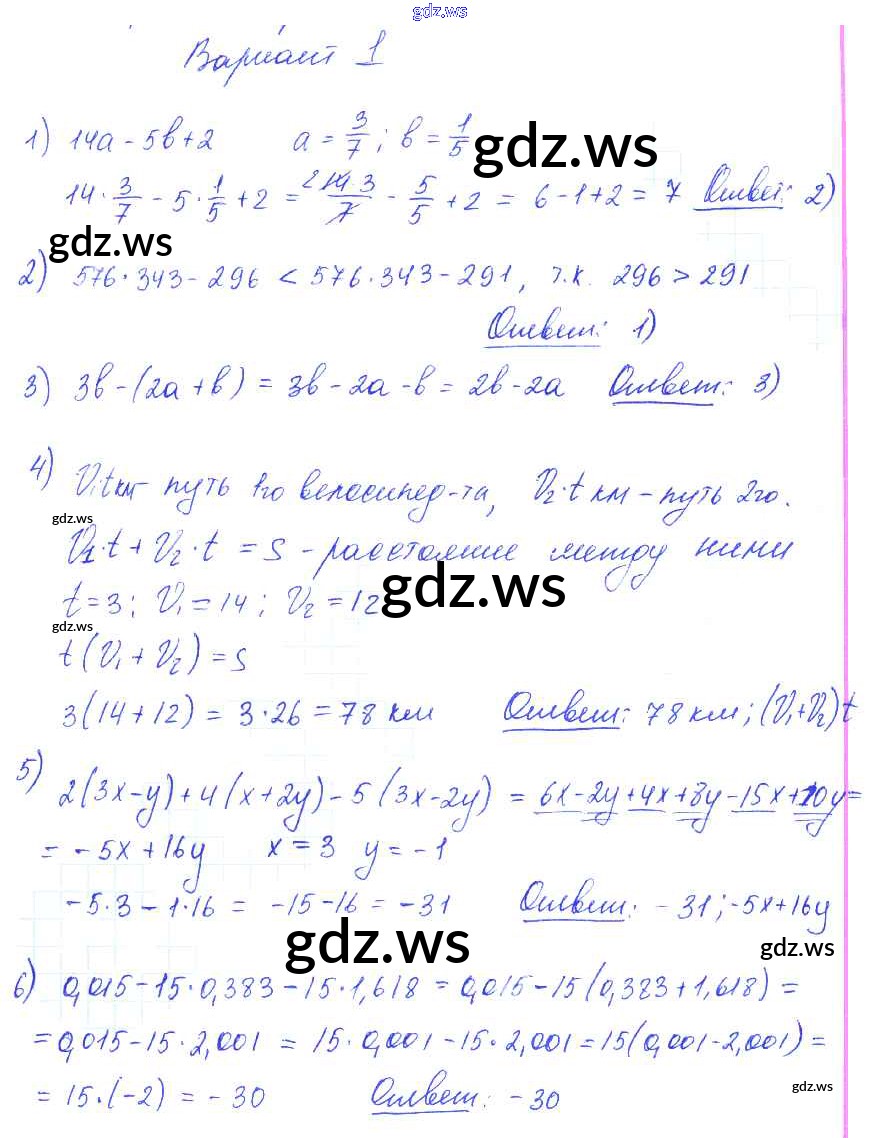 gdz.ws
Вариант 1
1) 14a - 5b + 2   a = 3/7; b = 1/5   gdz.ws
14 · 3/7 - 5 · 1/5 + 2 = ²14·3/7 - 5/5 + 2 = 6 - 1 + 2 = 7   Ответ: 2)
gdz.ws
2) 576·343 - 296 < 576·343 - 291, т.к. 296 > 291
Ответ: 1)
3) 3b - (2a + b) = 3b - 2a - b = 2b - 2a   Ответ: 3)
4) V₁t км - путь 1го велосипед-та, V₂·t км - путь 2го.
gdz.ws
V₁·t + V₂·t = S - расстояние между ними
t = 3; V₁ = 14; V₂ = 12   gdz.ws
gdz.ws
t(V₁ + V₂) = S
3(14 + 12) = 3·26 = 78 км   Ответ: 78 км; (V₁+V₂)t
5) 2(3x - y) + 4(x + 2y) - 5(3x - 2y) = 6x - 2y + 4x + 8y - 15x + 10y =
= - 5x + 16y   x = 3   y = -1
-5·3 - 1·16 = -15 - 16 = -31   Ответ: - 31; -5x + 16y
gdz.ws
gdz.ws
6) 0,015 - 15·0,383 - 15·1,618 = 0,015 - 15(0,383 + 1,618) =
= 0,015 - 15·2,001 = 15·0,001 - 15·2,001 = 15(0,001 - 2,001) =
= 15·(-2) = - 30   Ответ: - 30
gdz.ws